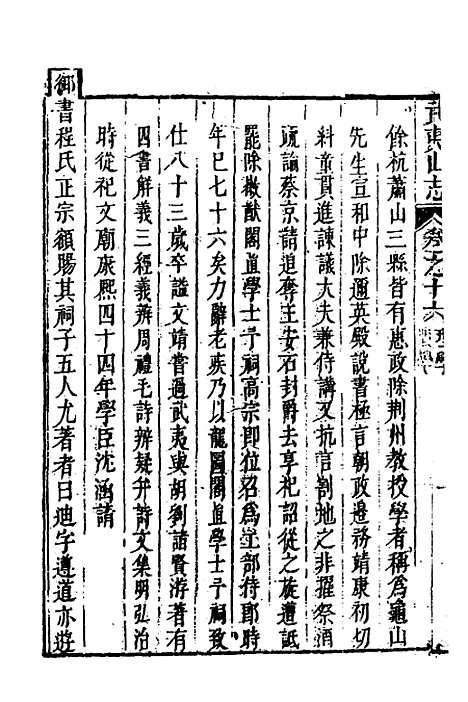 武夷山志 卷之十六 理學
餘杭蕭山三縣皆有惠政除荆州教授學者稱爲龜山
先生宣和中除邇英殿說書極言朝政邊務靖康初切
科童貫進諫議大夫兼侍講又抗言割地之非擢祭酒
疏論蔡京請追奪王安石封爵去享祀詔從之旋遭詆
罷除徽猷閣直學士予祠高宗即位召爲工部侍郎時
年已七十六矣力辭老疾乃以龍圖閣直學士予祠致
仕八十三歲卒諡文靖嘗過武夷與胡劉諸賢游著有
四書解義三經義辨周禮毛詩辨疑并詩文集明弘治
時從祀文廟康熙四十四年學臣沈涵請
御書程氏正宗額賜其祠子五人尤著者曰迪字遵道亦遊